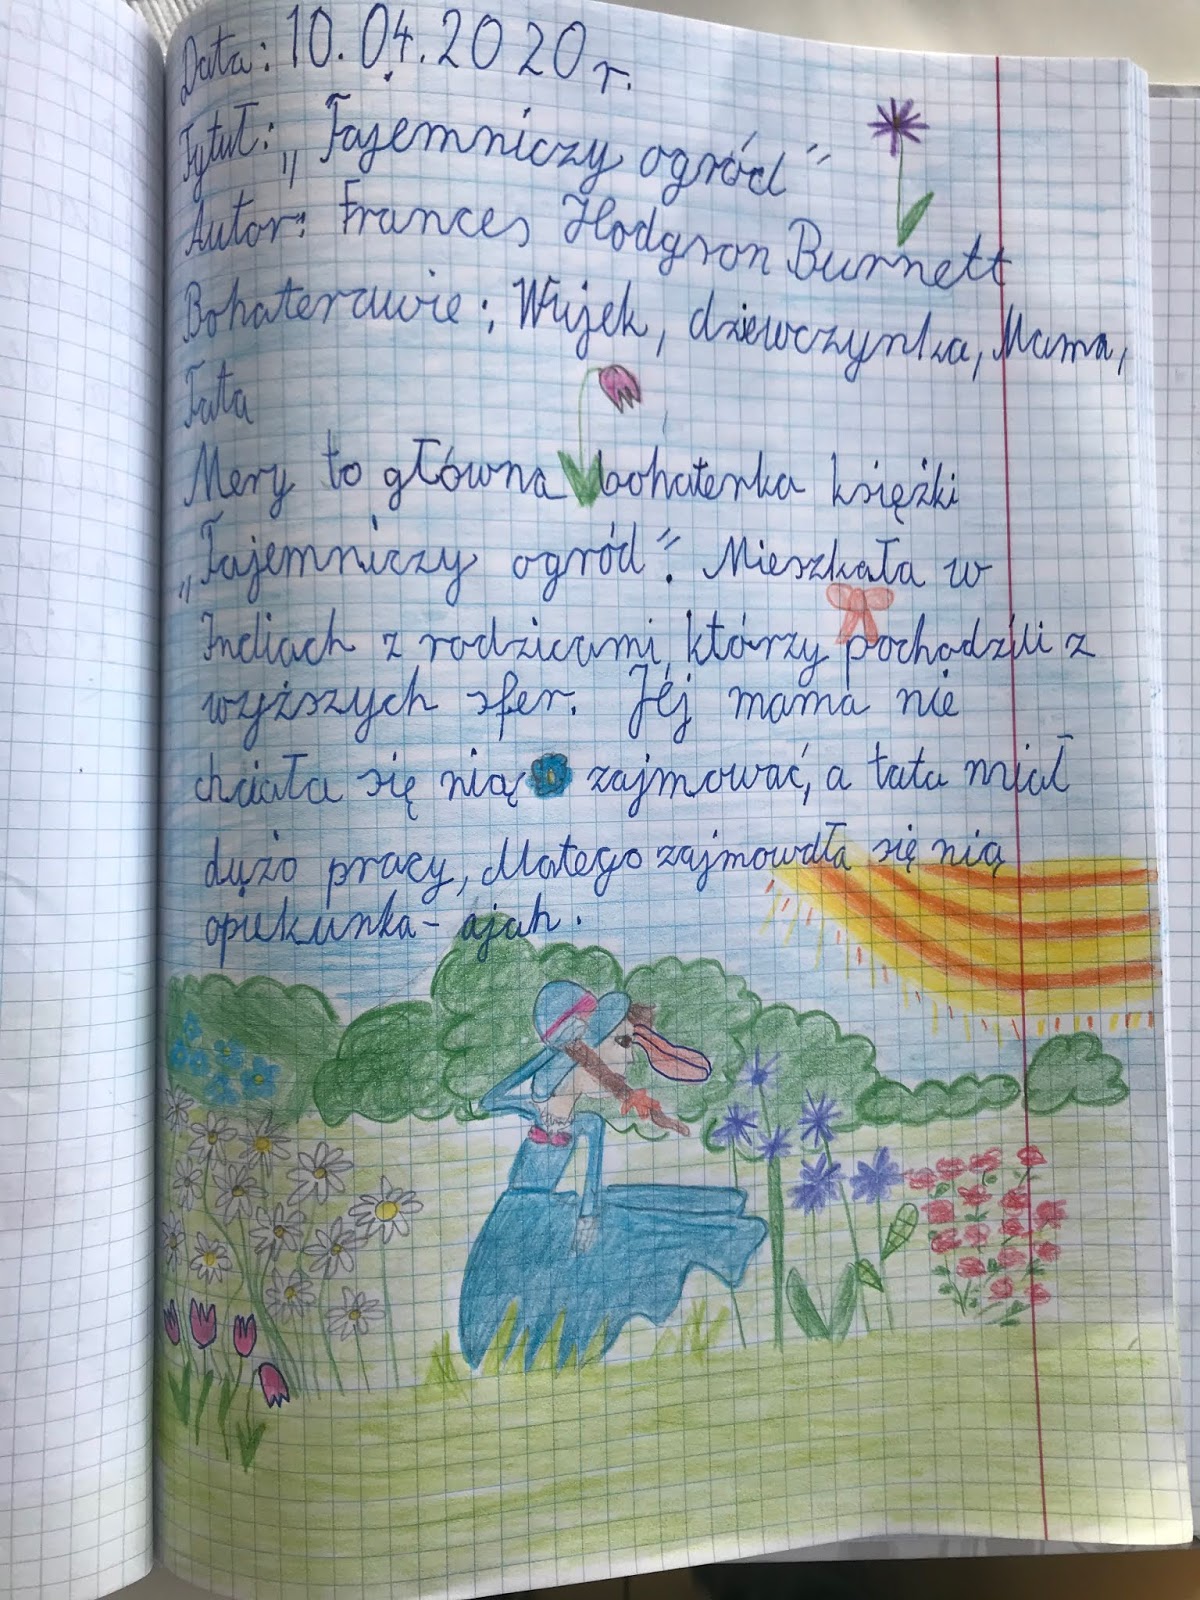 Data: 10.04.2020r.
Tytuł: „Tajemniczy ogród"
Autor: Frances Hodgson Burnett
Bohaterowie: Wujek, dziewczynka, Mama,
Tata
Mery to główna bohaterka książki
„Tajemniczy ogród". Mieszkała w
Indiach z rodzicami, którzy pochodzili z
wyższych sfer. Jej mama nie
chciała się nią zajmować, a tata miał
dużo pracy, dlatego zajmowała się nią
opiekunka - ajah.